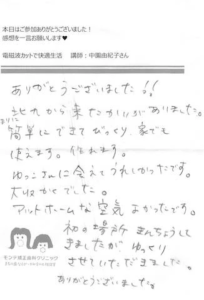 本日はご参加ありがとうございました！
感想を一言お願いします♥
電磁波カットで快適生活　講師：中園由紀子さん
ありがとうございました！！
北九から来たかいが ありました。
簡単にできてびっくり、家でも
使えます。作れます。
ゆっこさんに会えてうれしかったです。
大収かくでした。
アットホームな空気 よかったです。
初の場所 きんちょうして
きましたが ゆっくり
させていただきました。
ありがとうございました。
モンテ矯正歯科クリニック